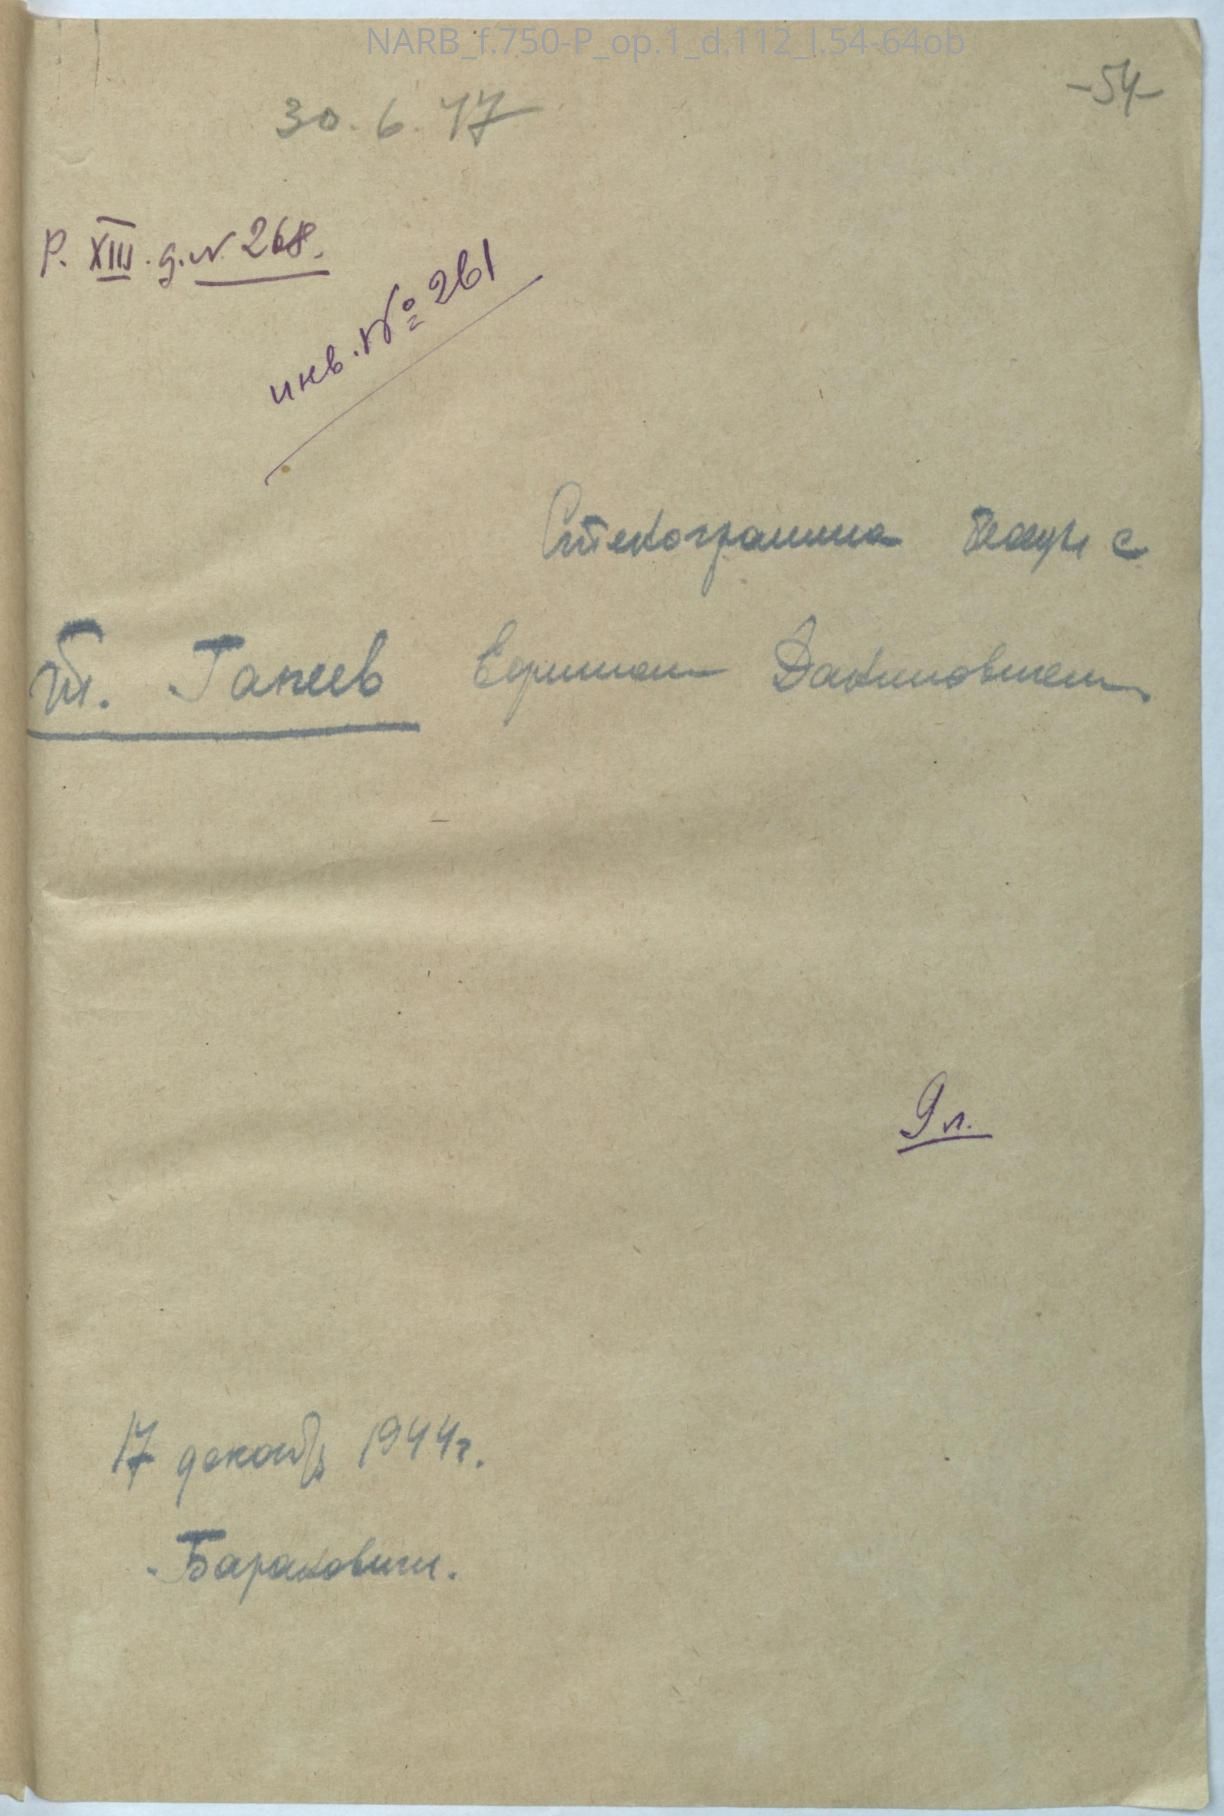 NARB_f.750-P_op.1_d.112_l.54-64ob
-54-
30.6.47
Р. XIII. д. № 268.
инв. № 261
Стенограмма беседы с
т. Гапеев Ефимом Даниловичем
9 л.
17 декабря 1944 г.
Барановичи.